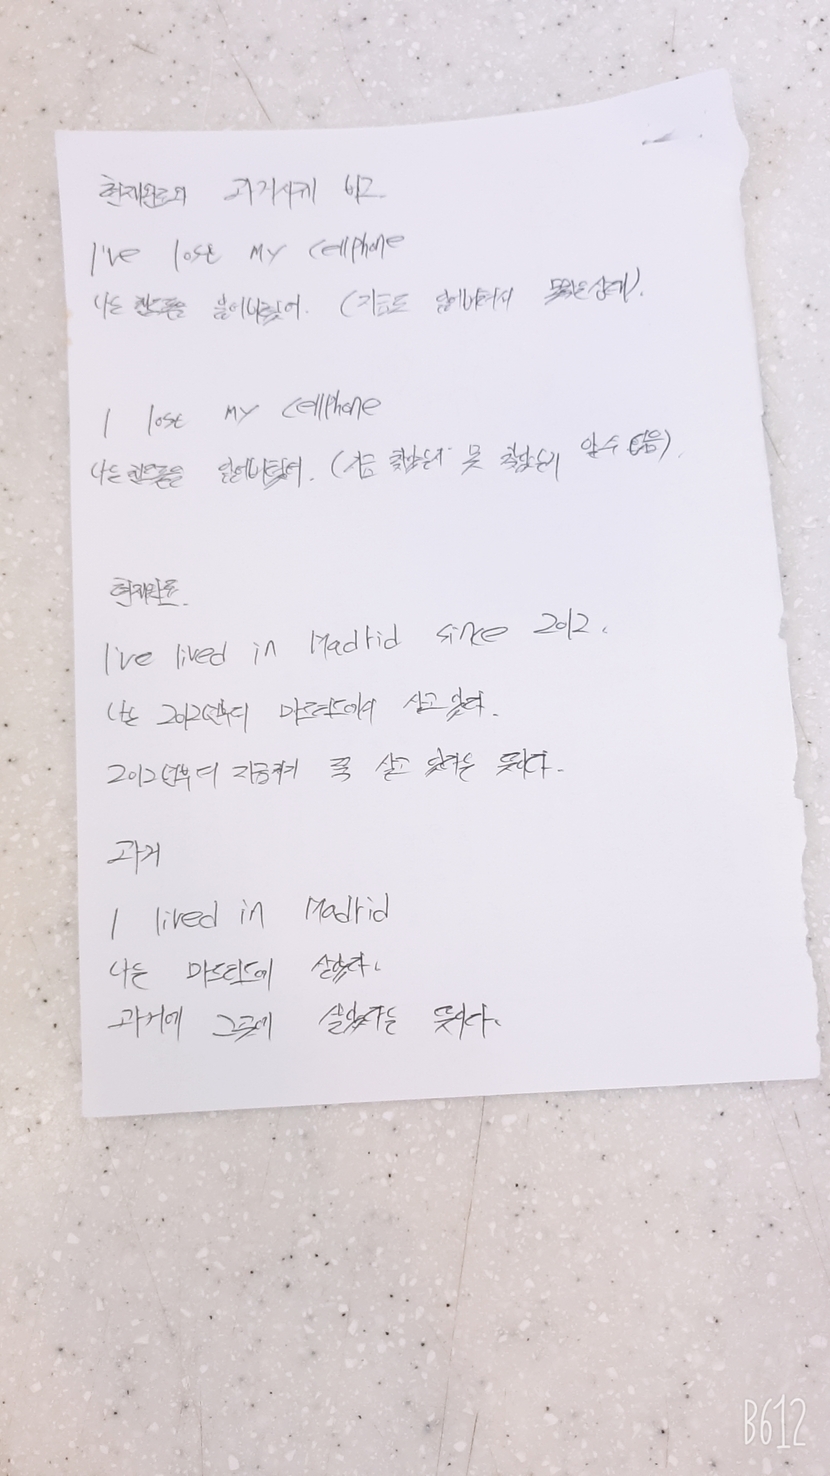 현재완료와 과거시제 비교
I've lost my cellphone
나는 핸드폰을 잃어버렸어. (지금도 잃어버려서 못찾은상태).
I lost my cellphone
나는 핸드폰을 잃어버렸어. (지금 찾았는지 못 찾았는지 알수 없음).
현재완료.
I've lived in Madrid since 2012.
나는 2012년부터 마드리드에서 살고 있다.
2012년부터 지금까지 쭉 살고 있다는 뜻이다.
과거
I lived in Madrid
나는 마드리드에 살았다.
과거에 그곳에 살았다는 뜻이다.
B612